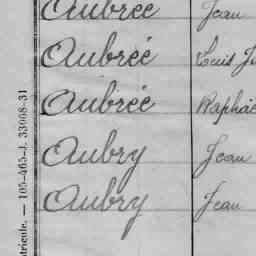 Aubrée Jean
Aubrée Louis
Aubrée Raphaë
Aubry Jean
Aubry Jean
atricule. — 105-465-J. 33008-31